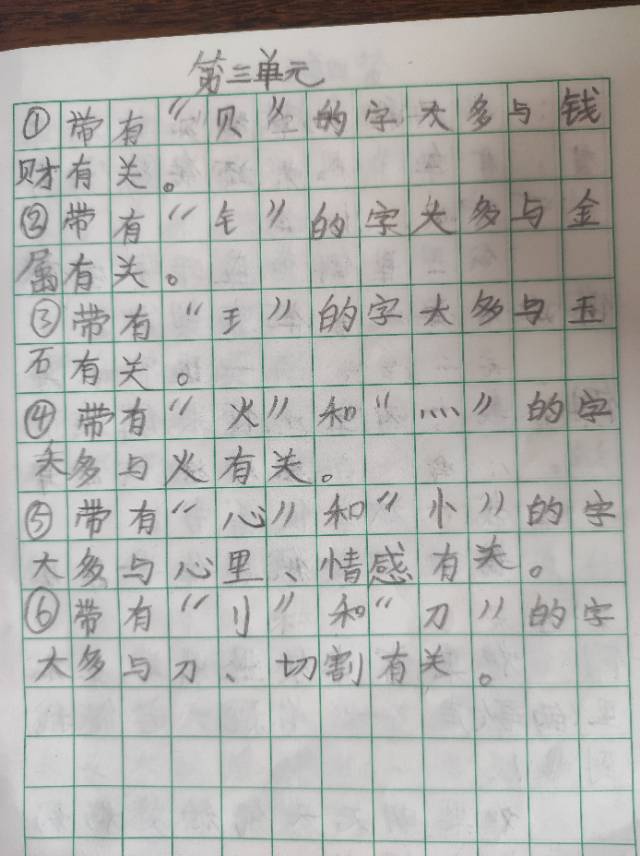 第三单元
①带有“贝”的字大多与钱
财有关。
②带有“钅”的字大多与金
属有关。
③带有“王”的字大多与玉
石有关。
④带有“火”和“灬”的字
大多与火有关。
⑤带有“心”和“⺗”的字
大多与心里、情感有关。
⑥带有“刂”和“刀”的字
大多与刀、切割有关。